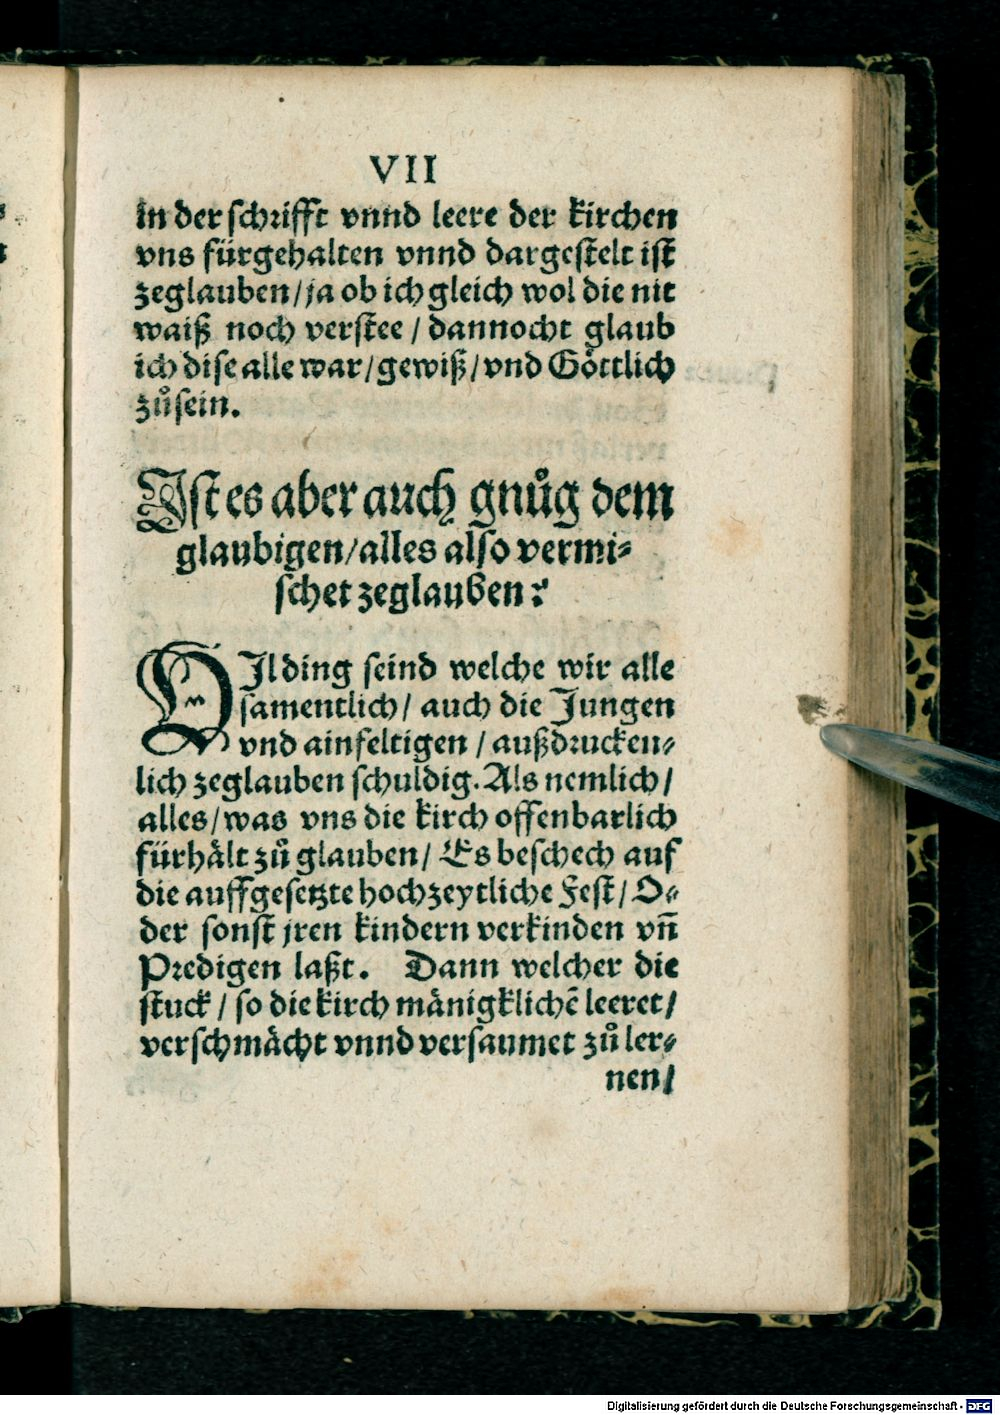 VII
in der schrifft vnnd leere der kirchen
vns fürgehalten vnnd dargestelt ist
zeglauben/ja ob ich gleich wol die nit
waiß noch verstee / dannocht glaub
ich dise alle war/gewiß/vnd Göttlich
zůsein.
Ist es aber auch gnůg dem
glaubigen/alles also vermi⸗
schet zeglauben?
VIl ding seind welche wir alle
samentlich/ auch die Jungen
vnd ainfeltigen / außdrucken⸗
lich zeglauben schuldig. Als nemlich/
alles/was vns die kirch offenbarlich
fürhält zů glauben/ Es beschech auf
die auffgesetzte hochzeytliche Fest/ O⸗
der sonst jren kindern verkinden vñ
Predigen laßt. Dann welcher die
stuck / so die kirch mänigklichē leeret/
verschmächt vnnd versaumet zů ler⸗
nen/
Digitalisierung gefördert durch die Deutsche Forschungsgemeinschaft - DFG